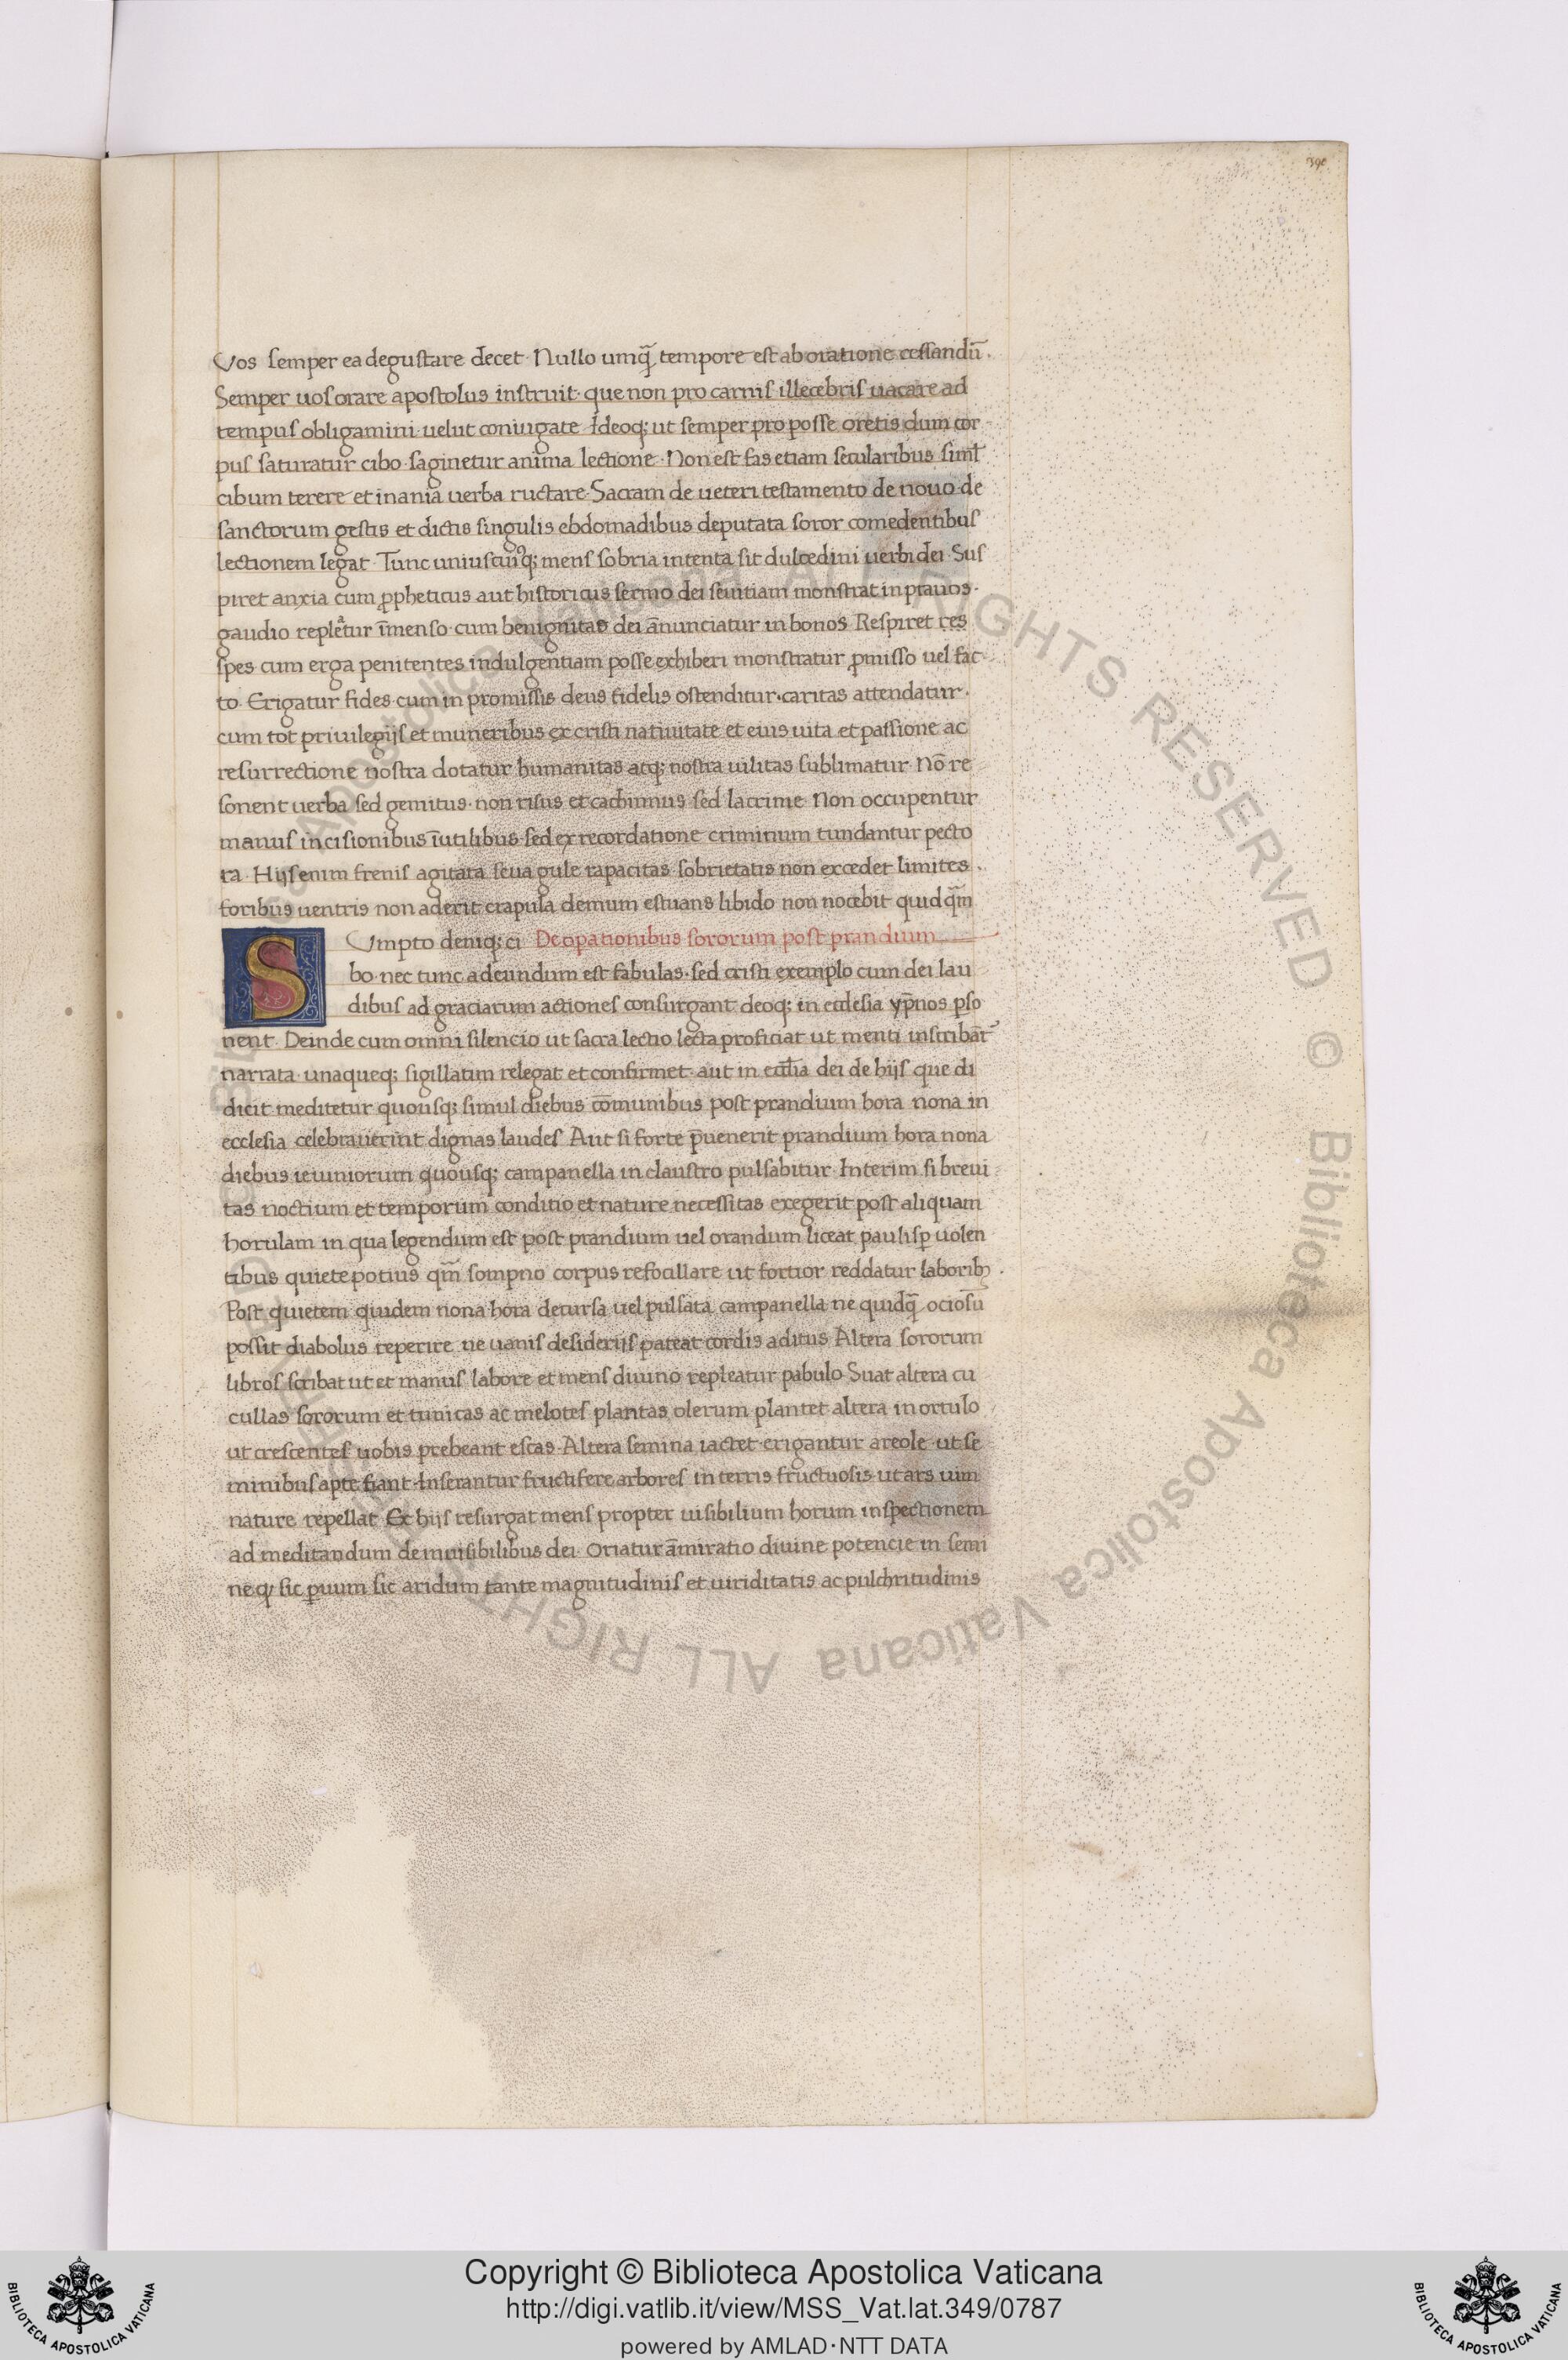 390
Vos semper ea degustare decet. Nullo umq̄ tempore est ab oratione cessandū.
Semper uos orare apostolus instruit. que non pro carnis illecebris uacare ad
tempus obligamini uelut coniugate. Ideoq; ut semper pro posse oretis dum cor
pus saturatur cibo. saginetur anima lectione. Non est fas etiam secularibus siml̄
cibum terere et inania uerba ructare. Sacram de ueteri testamento de nouo de
sanctorum gestis et dictis singulis ebdomadibus deputata soror comedentibus
lectionem legat. Tunc uniuscuiq; mens sobria intenta sit dulcedini uerbi dei. Sus
piret anxia cum ꝓpheticus aut historicus sermo dei seuitiam monstrat in prauos.
gaudio repletur īmenso. cum benignitas dei ānunciatur in bonos. Respiret res
spes cum erga penitentes indulgentiam posse exhiberi monstratur ꝓmisso uel fac
to. Erigatur fides. cum in promissis deus fidelis ostenditur. caritas attendatur.
cum tot priuilegijs et muneribus ex cristi natiuitate et eius uita et passione ac
resurrectione nostra dotatur humanitas atq; nostra uilitas sublimatur. Nō re
sonent uerba sed gemitus. non risus et cachinnus sed lacrime. Non occupentur
manus incisionibus īutilibus. sed ex recordatione criminum tundantur pecto
ra. Hijs enim frenis agitata seua gule rapacitas. sobrietatis non excedet limites.
foribus uentris non aderit crapula demum estuans libido non nocebit quid qm̄
SUmpto deniq; ci De opationibus sororum post prandium
bo. nec tunc adeundum est fabulas. sed cristi exemplo cum dei lau
dibus ad graciarum actiones consurgant. deoq; in ecclesia yp̄nos ꝑso
nent. Deinde cum omni silencio ut sacra lectio lecta proficiat ut menti inscribāt
narrata unaqueq; sigillatim relegat et confirmet. aut in eccl̄ia dei de hijs que di
dicit meditetur quousq; simul diebus cōmunibus post prandium hora nona in
ecclesia celebrauerint dignas laudes. Aut si forte p̄uenerit prandium hora nona
diebus ieiuniorum quousq; campanella in claustro pulsabitur. Interim si breui
tas noctium et temporum conditio et nature necessitas exegerit post aliquam
horulam in qua legendum est post prandium uel orandum liceat paulisꝑ uolen
tibus quiete potius qm̄ sompno corpus refocillare ut fortior reddatur laborib;.
Post quietem quidem nona hora decursa uel pulsata campanella ne quidq̄ ociosū
possit diabolus reperire ne uanis desiderijs pateat cordis aditus. Altera sororum
libros scribat ut et manus labore et mens diuino repleatur pabulo. Suat altera cu
cullas sororum et tunicas ac melotes plantas olerum plantet altera in ortulo
ut crescentes uobis prebeant escas. Altera semina iactet. erigantur areole ut se
minibus apte fiant. Inserantur fructifere arbores in terris fructuosis ut ars uim
nature repellat. Ex hijs resurgat mens propter uisibilium horum inspectionem
ad meditandum de inuisibilibus dei. Oriatur āmiratio diuine potencie in semi
neq; sic ꝑuum sic aridum tante magnitudinis et uiriditatis ac pulchritudinis
Biblioteca Apostolica Vaticana ALL RIGHTS RESERVED ©
Copyright © Biblioteca Apostolica Vaticana
http://digi.vatlib.it/view/MSS_Vat.lat.349/0787
powered by AMLAD·NTT DATA
BIBLIOTECA APOSTOLICA VATICANA
BIBLIOTECA APOSTOLICA VATICANA